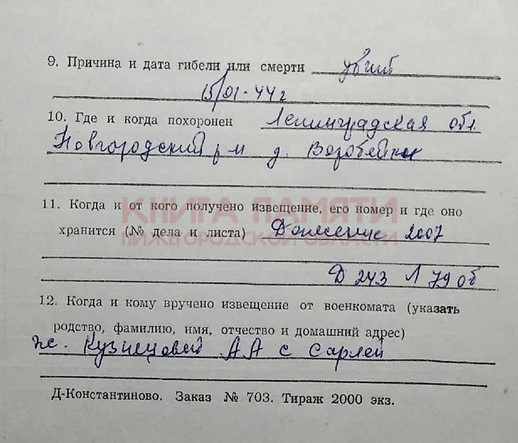 9. Причина и дата гибели или смерти убит
15/01-44г
10. Где и когда похоронен Ленинградская обл
Новгородский р-н д. Воробейка
11. Когда и от кого получено извещение, его номер и где оно
КНИГА ПАМЯТИ
хранится (№ дела и листа) Донесение 2007
НИЖЕГОРОДСКОЙ ОБЛАСТИ
Д 243 Л 79 об
12. Когда и кому вручено извещение от военкомата (указать
родство, фамилию, имя, отчество и домашний адрес)
ж. Кузнецовой А А с Сарлей
Д-Константиново. Заказ № 703. Тираж 2000 экз.